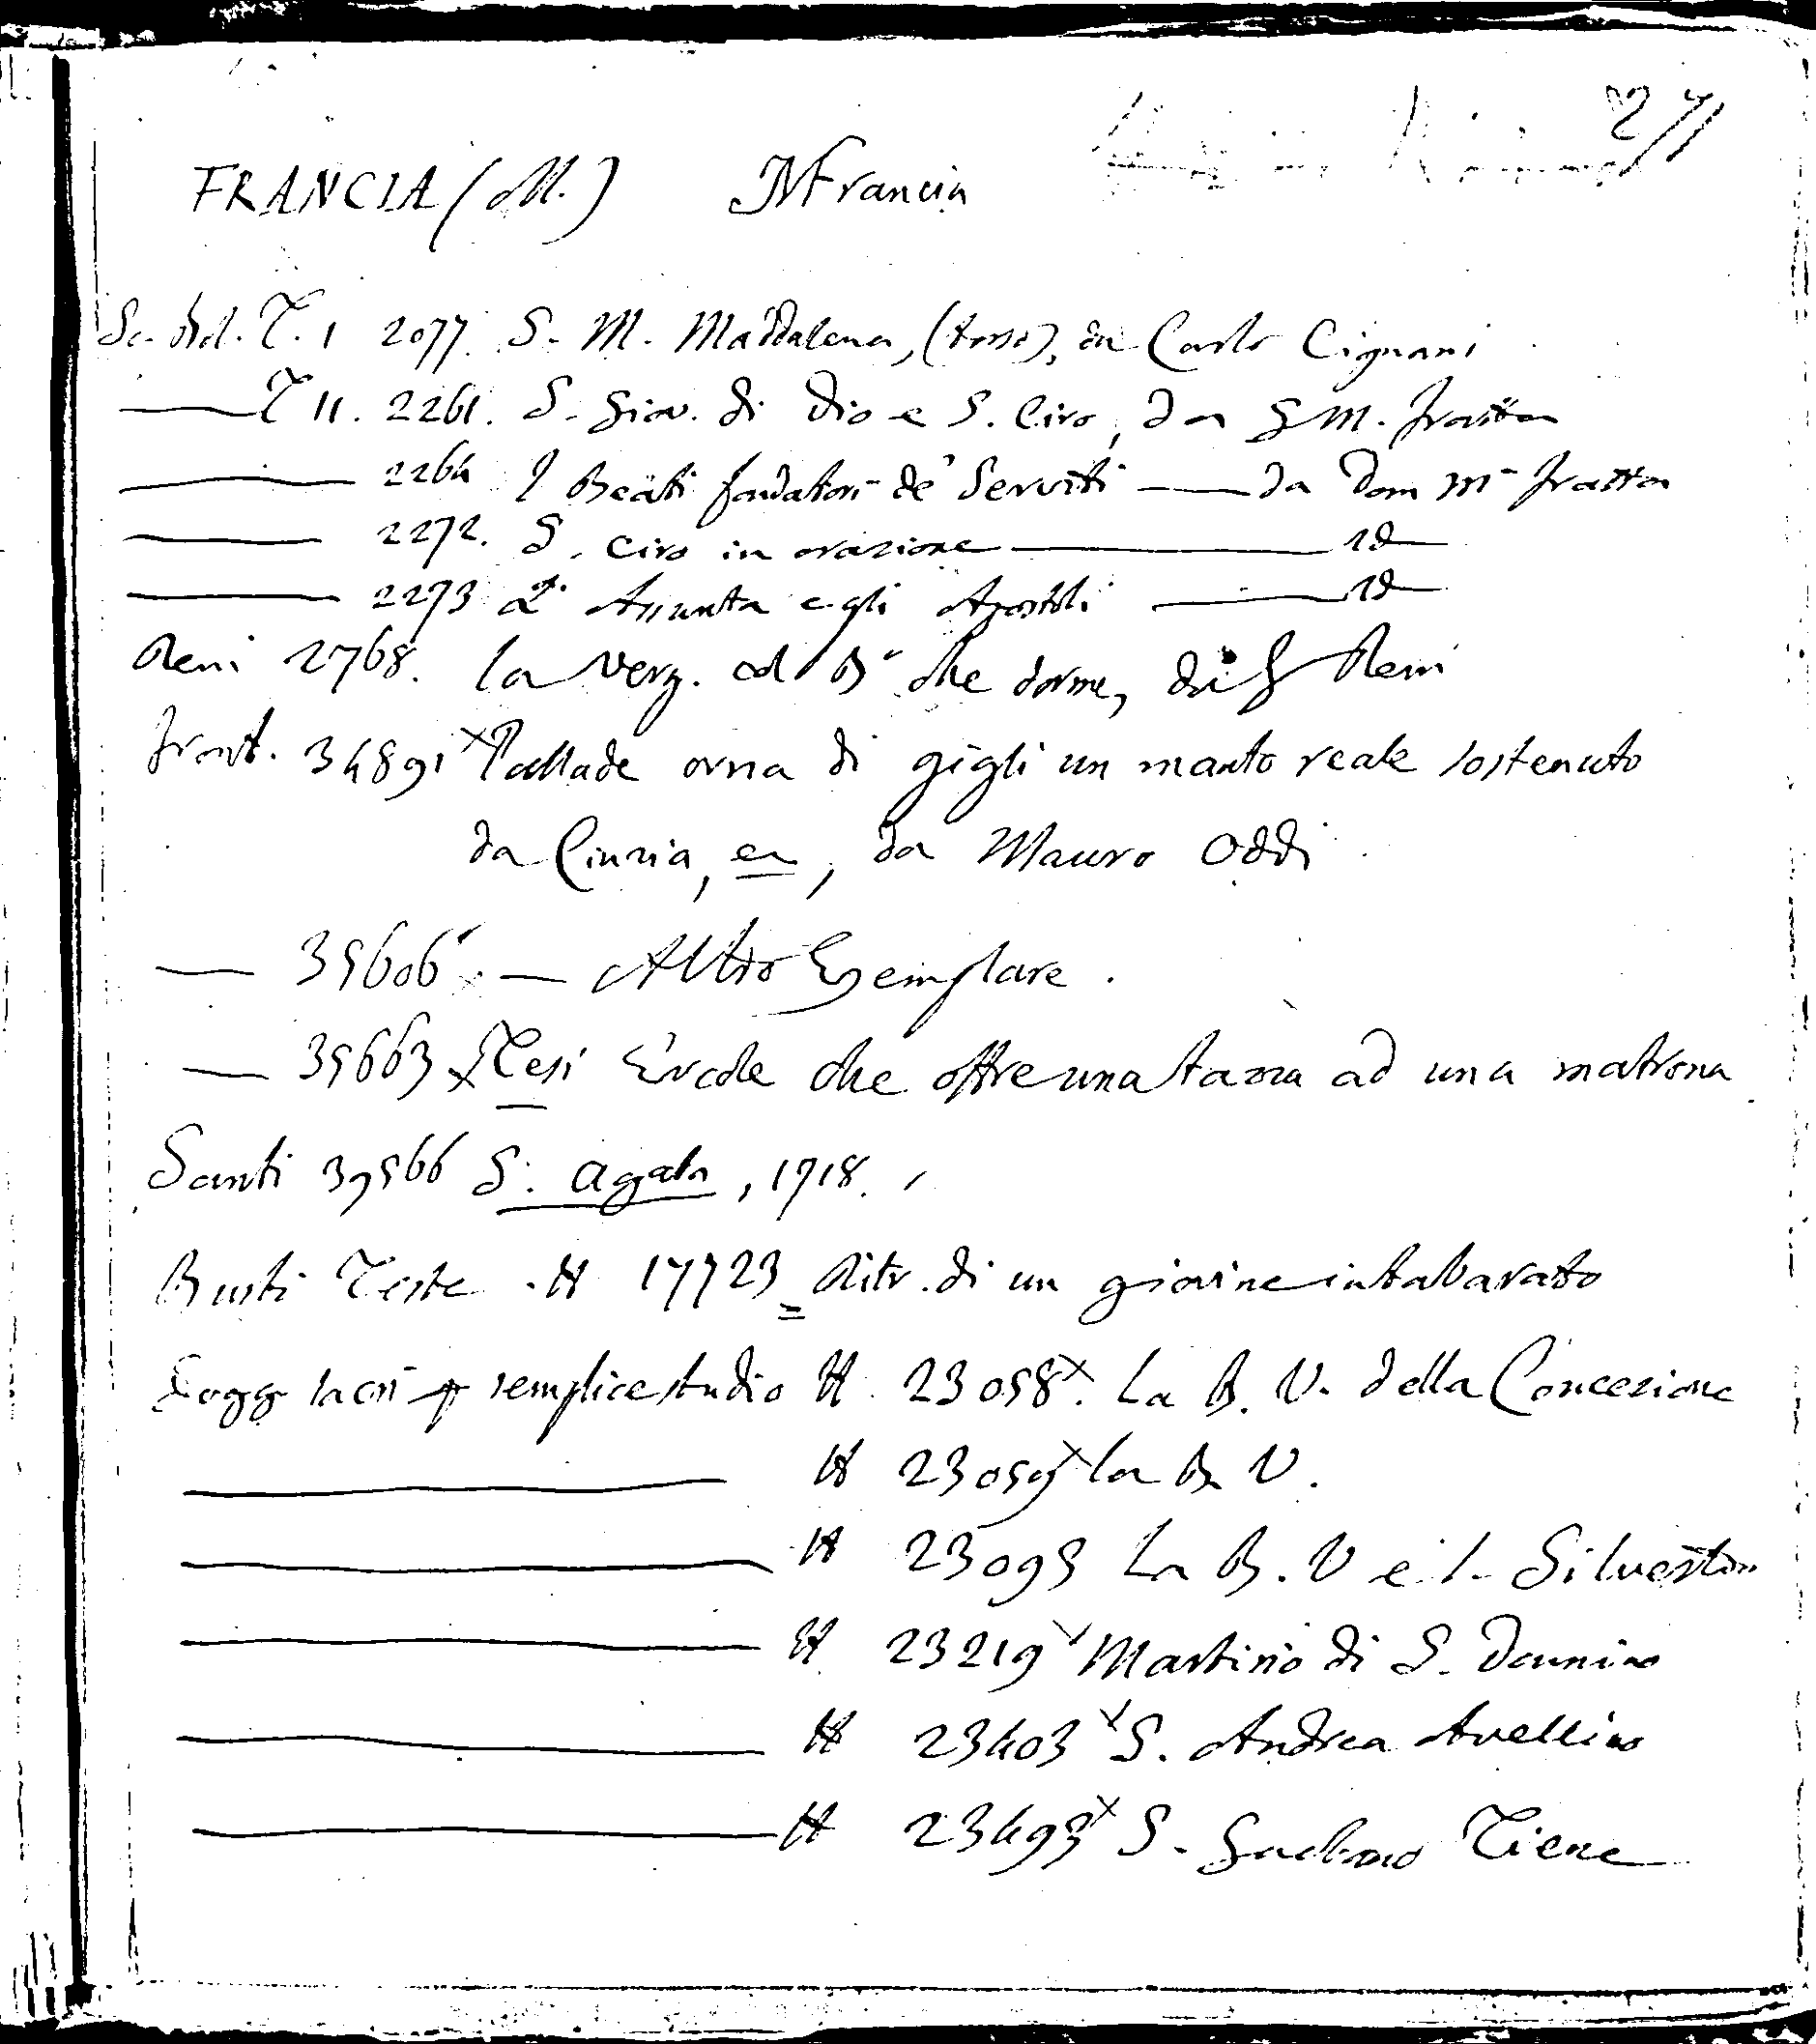 271
FRANCIA (M.) MFrancia
Sc. Bol. T. 1 2077. S. M. Maddalena, (torso), da Carlo Cignani
T 11. 2261. S. Giov. di Dio e S. Ciro, da G M. Fratta
2264 I Beati fondatori de' Serviti — da Dom Mª Fratta
2272. S. Ciro in orazione — id
2273 L' Assunta e gli Apostoli — id
Reni 2768. la Verg. col Bº che dorme, da G Reni
Front. 34891 x Pallade orna di gigli un manto reale sostenuto
da Cinzia, ec, da Mauro Oddi
— 35606 x — Altro Esemplare.
— 35663 x Tesi Ercole che offre una tazza ad una matrona
Santi 39566 S. Agata, 1718.
Busti Teste. H 17723 = Ritr. di un giovine intabarato
Sogg sacri p semplice studio H 23058 x. La B. V. della Concezione
H 23059 x la B V.
H 23093 La B. V e S. Silvestro
H 23219 x Martirio di S. Donnino
H 23403 x S. Andrea Avellino
H 23493 x S. Gaetano Tiene